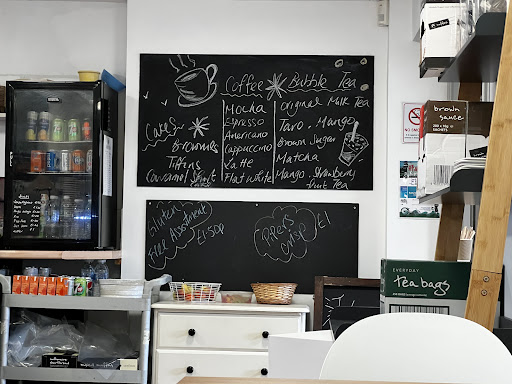 Coffee Bubble Tea
Cakes
Brownies
Tiffins
Caramel Short
Mocha
Espresso
Americano
Cappuccino
Latte
Flat White
Original Milk Tea
Taro, Mango
Brown Sugar
Matcha
Mango, Strawberry
fruit Tea
Gluten
Free Assortment
£1.50p
Pipers
Crisp £1
NO SMOKING
brown
sauce
EVERYDAY
tea bags